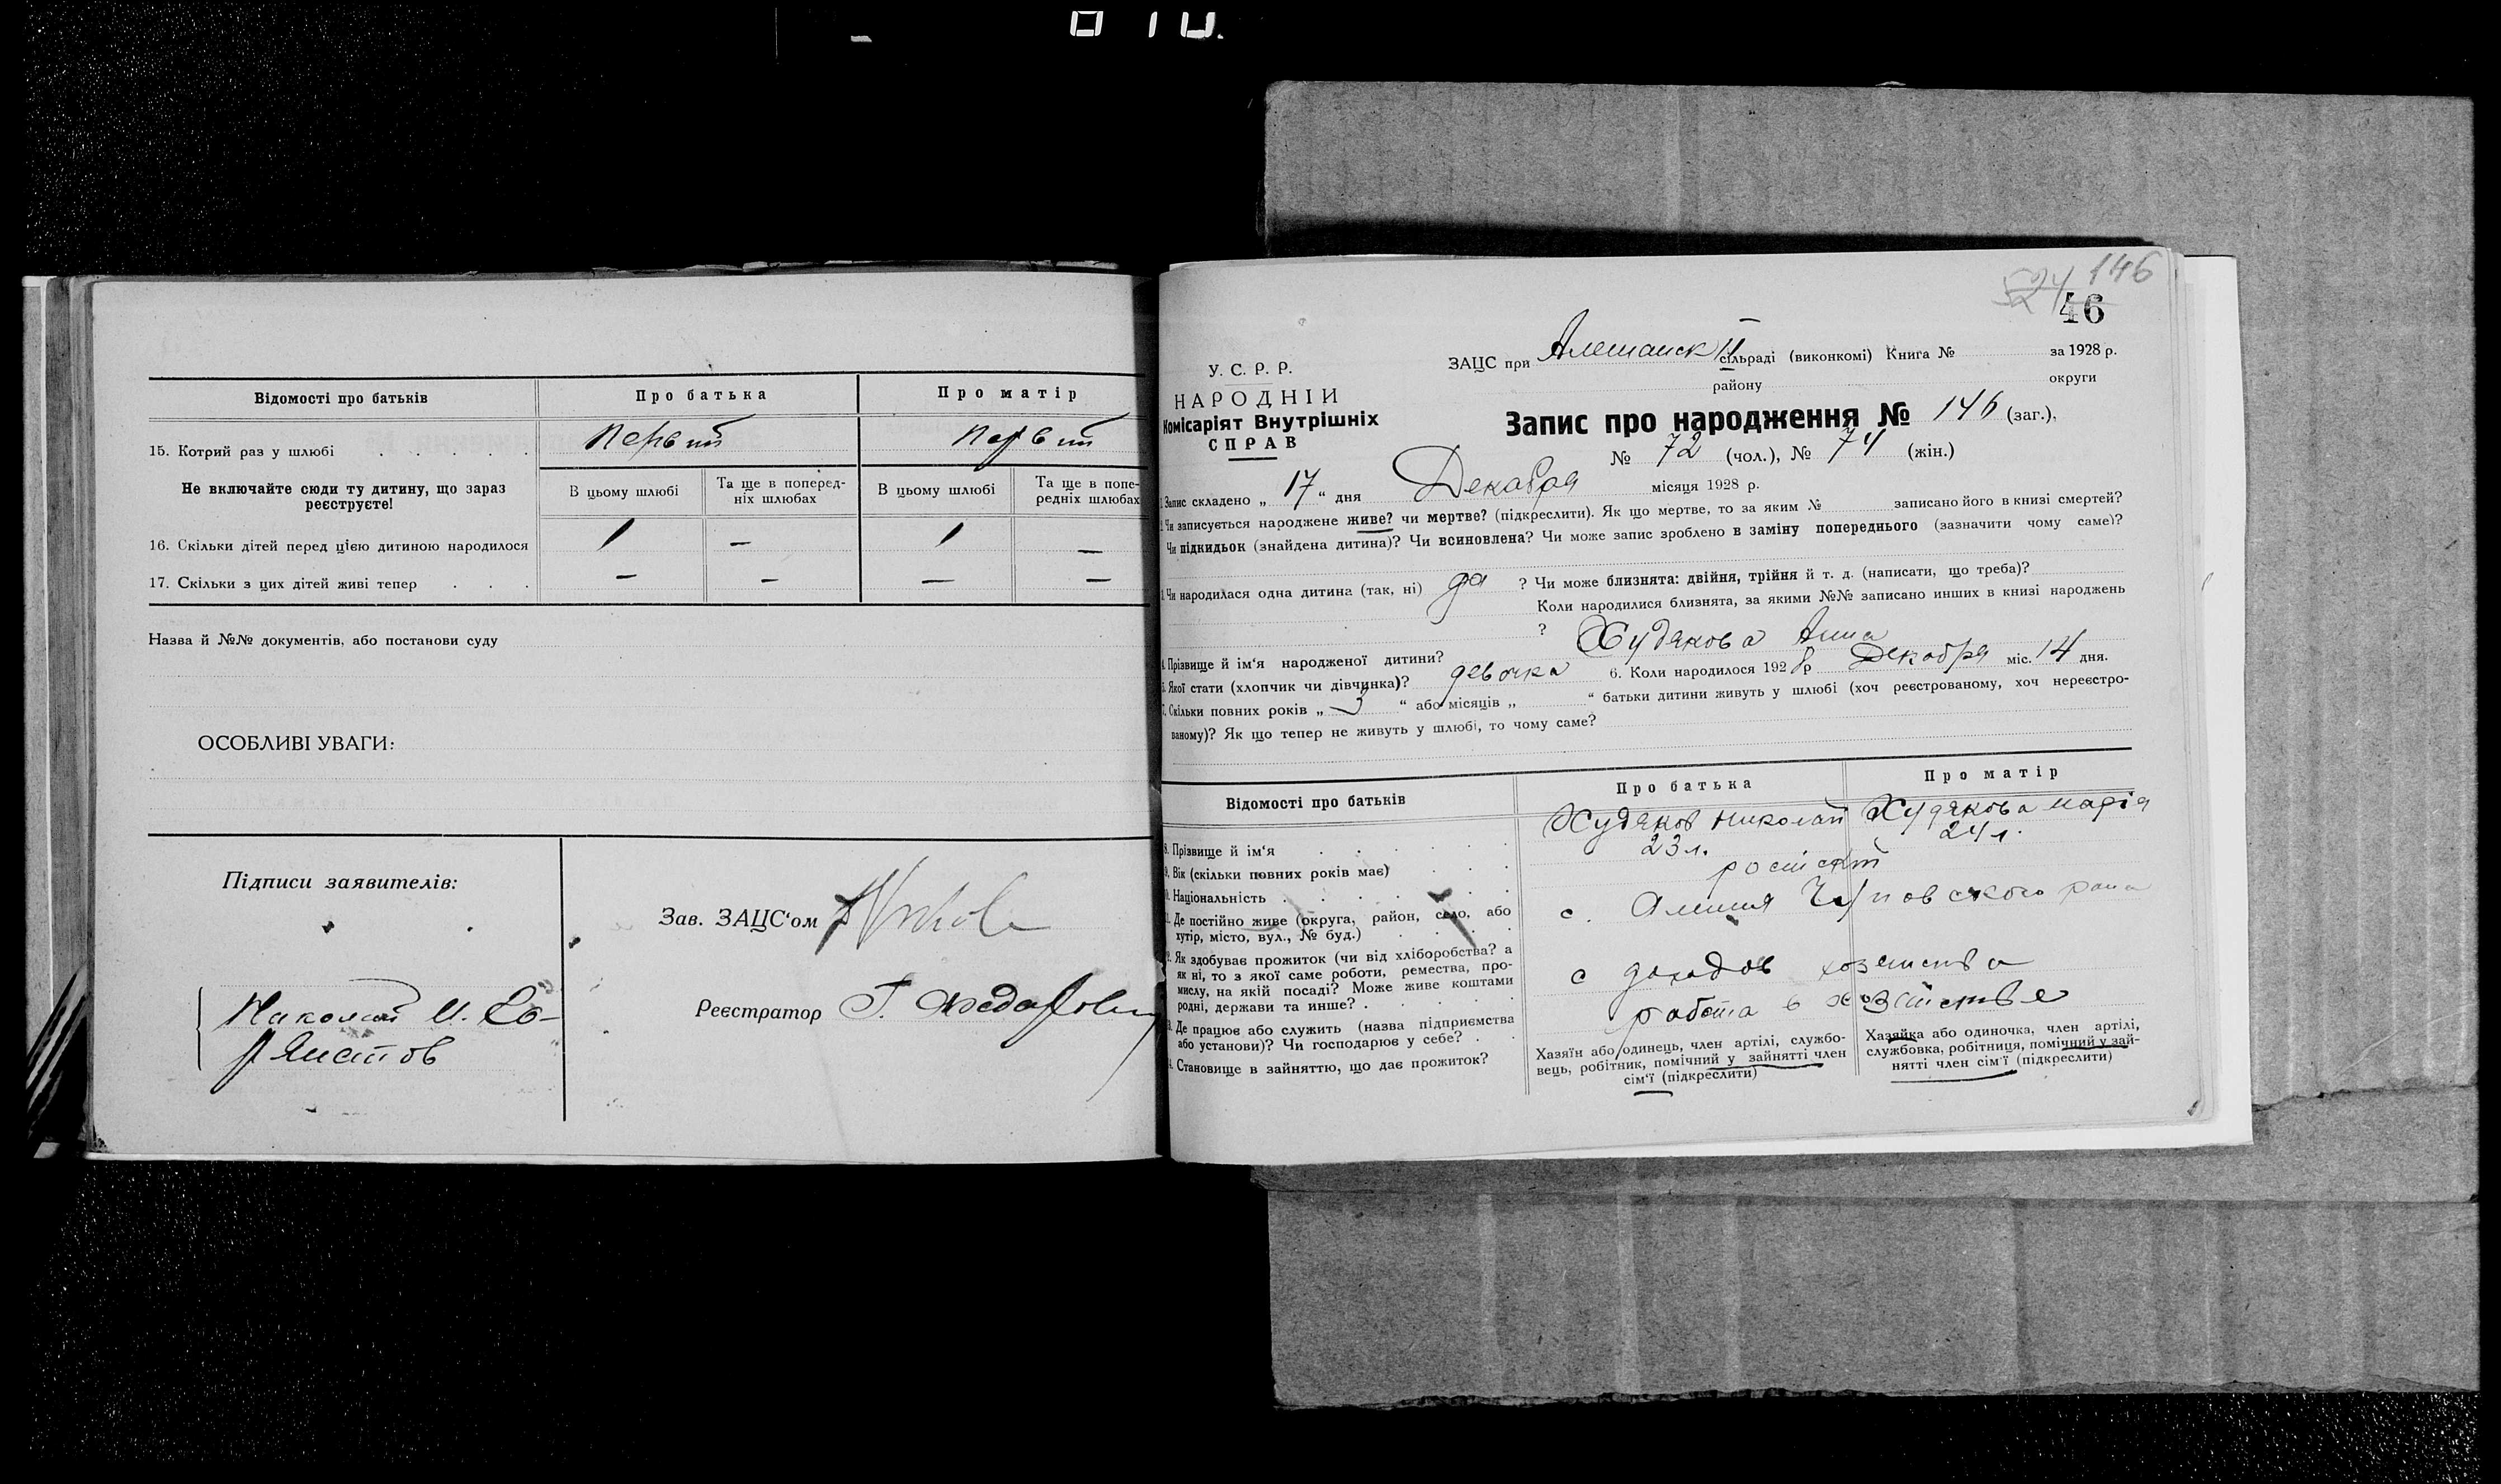 Відомості про батьків
Про батька
Про матір
15. Котрий раз у шлюбі
Первий
Первий
Не включайте сюди ту дитину, що зараз
реєструєте!
В цьому шлюбі
Та ще в поперед-
ніх шлюбах
В цьому шлюбі
Та ще в попе-
редніх шлюбах
16. Скільки дітей перед цією дитиною народилося
1 — 1 —
17. Скільки з цих дітей живі тепер
— — — —
Назва й №№ документів, або постанови суду
ОСОБЛИВІ УВАГИ:
Підписи заявителів:
Николай И.
Зав. ЗАЦС‘ом
Реєстратор Г.
146
46
У. С. Р. Р.
НАРОДНІЙ
Комісаріят Внутрішніх
СПРАВ
ЗАЦС при Алешанск II сільраді (виконкомі) Книга № за 1928 р.
району округи
Запис про народження № 146 (заг.),
№ 72 (чол.), № 74 (жін.)
1. Запис складено „ 17 “ дня Декабря місяця 1928 р.
2. Чи записується народжене живе? чи мертве? (підкреслити). Як що мертве, то за яким № записано його в книзі смертей?
Чи підкидьок (знайдена дитина)? Чи всиновлена? Чи може запис зроблено в заміну попереднього (зазначити чому саме)?
3. Чи народилася одна дитина (так, ні) да ? Чи може близнята: двійня, трійня й т. д. (написати, що треба)?
Коли народилися близнята, за якими №№ записано инших в книзі народжень
?
4. Прізвище й ім‘я народженої дитини? Худякова Анна
5. Якої стати (хлопчик чи дівчинка)? девочка 6. Коли народилося 1928 р Декабря міс. 14 дня.
7. Скільки повних років „ 3 “ або місяців „ “ батьки дитини живуть у шлюбі (хоч реєстрованому, хоч нереєстро-
ваному)? Як що тепер не живуть у шлюбі, то чому саме?
Відомості про батьків
Про батька
Про матір
8. Прізвище й ім‘я
Худяков Николай
Худякова Марія
9. Вік (скільки повних років має)
23 л.
24 л.
10. Національність
11. Де постійно живе (округа, район, село, або
хутір, місто, вул., № буд.)
с. Алешня
12. Як здобуває прожиток (чи від хліборобства? а
як ні, то з якої саме роботи, ремества, про-
мислу, на якій посаді? Може живе коштами
родні, держави та инше?
с доходов
13. Де працює або служить (назва підприємства
або установи)? Чи господарює у себе?
работа в хозяйстве
14. Становище в зайняттю, що дає прожиток?
Хазяїн або одинець, член артілі, службо-
вець, робітник, помічний у зайнятті член
сім‘ї (підкреслити)
Хазяйка або одиночка, член артілі,
службовка, робітниця, помічний у зай-
нятті член сім‘ї (підкреслити)